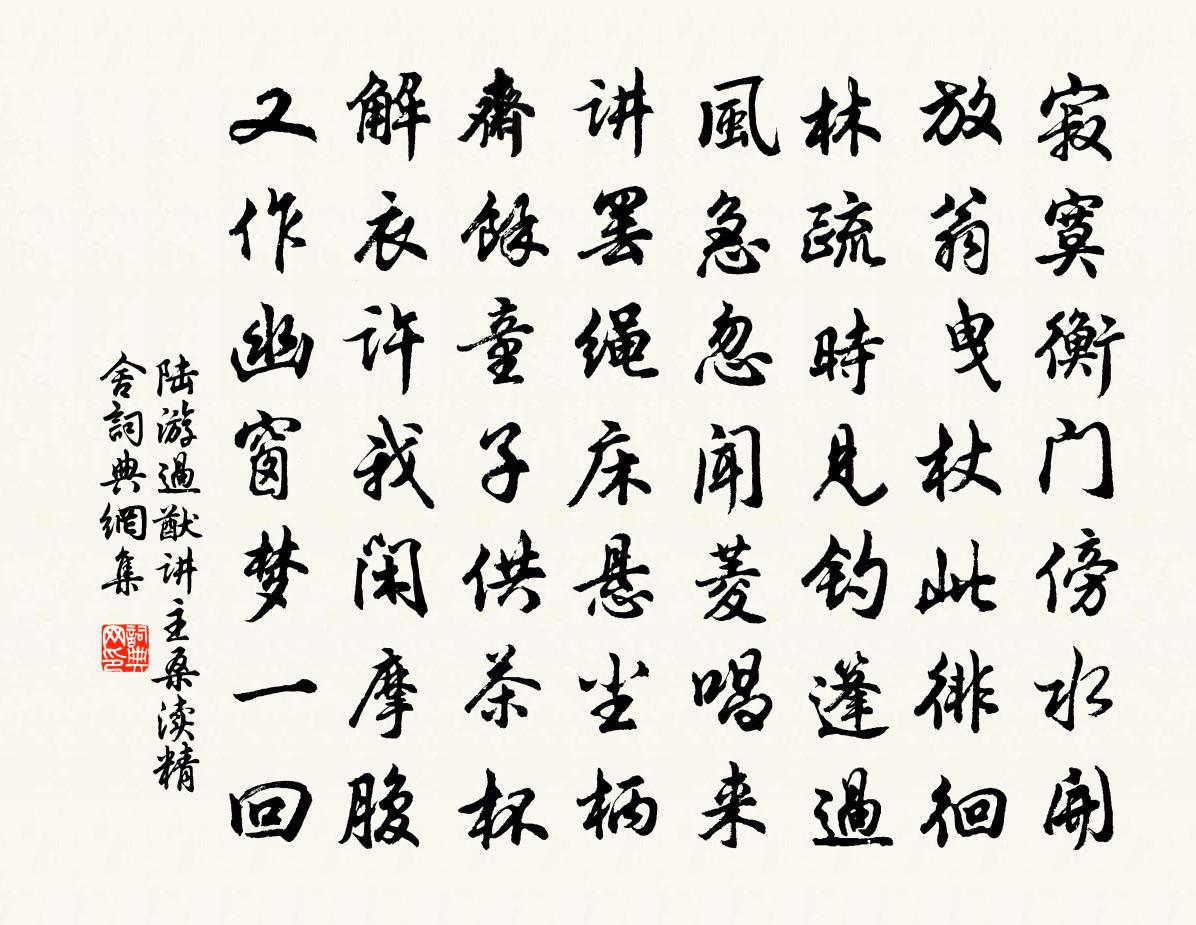 寂寞衡门傍水開
放翁曳杖此徘徊
林疏時見钓篷過
風急忽聞菱唱来
讲罢绳床悬尘柄
齋餘童子供茶杯
解衣许我闲摩腹
又作幽窗梦一回
陆游過猷讲主桑渎精
舍詞典網集
詞典
网印